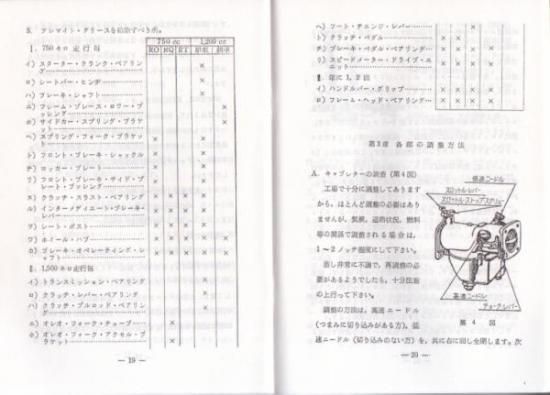 3. フレマイト・グリースを給脂すべき所。
I. 750キロ走行毎
750 cc 1,200 cc
RO RQ RT 単車 側車
イ) スターター・クランク・ベアリング… ×
ロ) シートバー・ヒンヂ… ×
ハ) ブレーキ・シャフト… ×
ニ) フレーム・ブレース・ロワー・ブッシング… ×
ホ) サイドカー・スプリング・ブラケット… ×
ヘ) スプリング・フォーク・ブラケット… × ×
ト) フロント・ブレーキ・シャックル × ×
チ) ロッカー・プレート… × ×
リ) フロント・ブレーキ・サイド・プレート・ブッシング… × ×
ヌ) クラッチ・スラスト・ベアリング × × × × ×
ル) インターメディエート・ブレーキ・レバー… × × × × ×
ヲ) シート・ポスト… × × × × ×
ワ) ホイール・ハブ… × × × × ×
カ) ブレーキ・オペレーティング・シャフト… × × × × ×
II. 1,500キロ走行毎
イ) トランスミッション・ベアリング
ロ) クラッチ・レバー・ベアリング ×
ハ) クラッチ・プルロッド・ベアリング… ×
ニ) オレオ・フォーク・チューブ… ×
ホ) オレオ・フォーク・アクセル・ブラケット… ×
— 19 —
ヘ) フート・チェンヂ・レバー… ×
ト) クラッチ・ペダル… × ×
チ) ブレーキ・ペダル・ベアリング… × × × ×
リ) スピードメーター・ドライブ・ユニット… × × × ×
III. 年に1, 2回
イ) ハンドルバー・グリップ… × × × ×
ロ) フレーム・ヘッド・ベアリング… × × × ×
第3章 各部の調整方法
A. キャブレターの調整 (第4図)
工場で十分に調整してあります
から、ほとんど調整の必要はあり
ませんが、気候、道路状況、燃料
等の関係で調整される場合は、
1〜2ノッチ程度にして下さい。
若し非常に不調で、再調整の必
要があるようでしたら、十分注意
の上行って下さい。
調整の方法は、高速ニードル
(つまみに切り込みがある方)、低
速ニードル (切り込みのない方) を、共に右に廻し全閉します。次
低速ニードル
スロットル・レバー
スロットル・ストップスクリュー
高速ニードル
チョーク・レバー
第 4 図
— 20 —